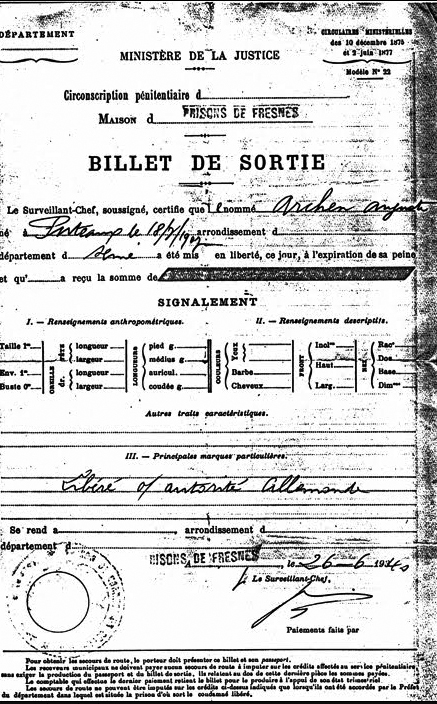 DÉPARTEMENT
CIRCULAIRES MINISTÉRIELLES
des 10 décembre 1875
et 2 juin 1877
Modèle N° 22
MINISTÈRE DE LA JUSTICE
Circonscription pénitentiaire d
MAISON d PRISONS DE FRESNES
BILLET DE SORTIE
Le Surveillant-Chef, soussigné, certifie que le nommé Archen Auguste
né à le 18/ arrondissement d
département d Seine a été mis en liberté, ce jour, à l'expiration de sa peine
et qu' a reçu la somme de
SIGNALEMENT
I. — Renseignements anthropométriques.
II. — Renseignements descriptifs.
Taille 1m
Env. 1m
Buste 0m
OREILLE dr.
longueur
largeur
longueur
largeur
LONGUEURS
pied g.
médius g.
auricul. g.
coudée g.
COULEURS
Yeux
Barbe
Cheveux
FRONT
Incl
Haut
Larg.
NEZ
Rac
Dos
Base
Dim
Autres traits caractéristiques.
III. — Principales marques particulières.
Libéré of autorité Allemande
Se rend à , arrondissement d
département d
PRISONS DE FRESNES , le 26-6 1940
Le Surveillant-Chef,
Paiements faits par
Pour obtenir les secours de route, le porteur doit présenter ce billet et son passeport.
Les receveurs municipaux ne doivent payer aucun secours de route à imputer sur les crédits affectés au service pénitentiaire
sans exiger la production du passeport et du billet de sortie. Ils relatent au dos de cette dernière pièce les sommes payées.
Le comptable qui effectue le dernier paiement retient le billet pour le produire à l'appui de son état trimestriel.
Les secours de route ne peuvent être imputés sur les crédits ci-dessus indiqués que lorsqu'ils ont été accordés par le Préfet
du département dans lequel est située la prison d'où sort le condamné libéré.